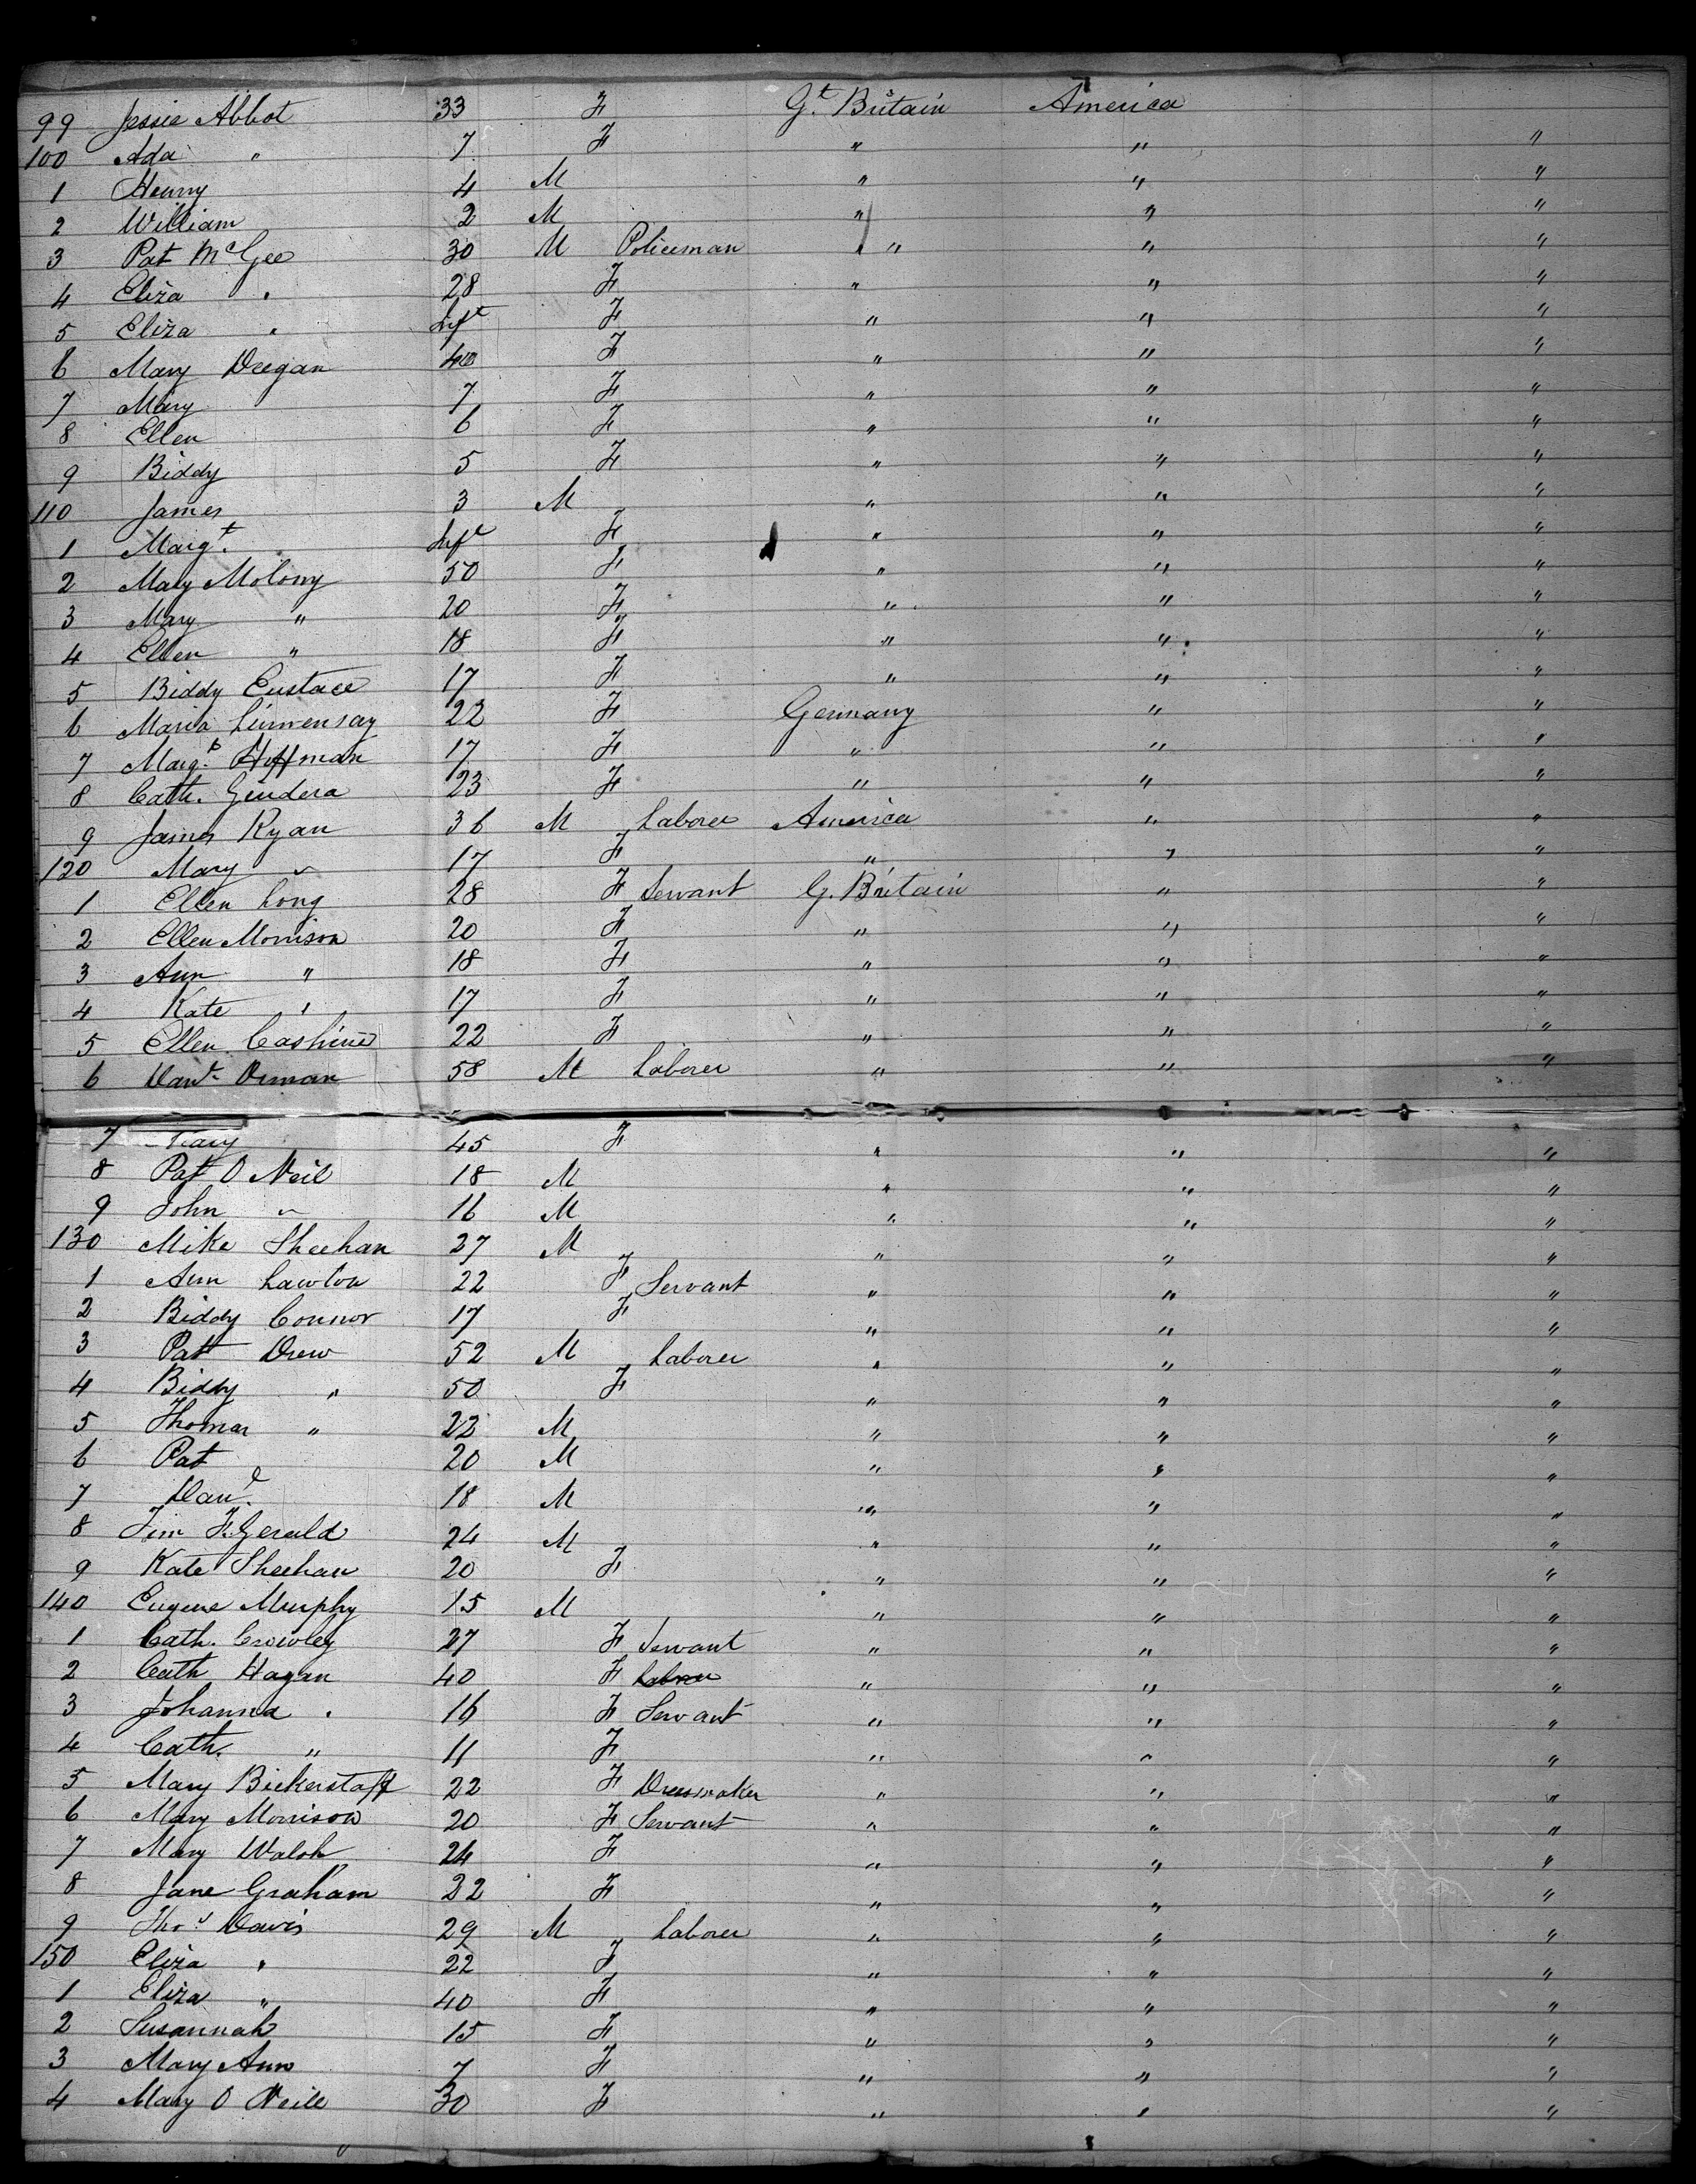 99 Jessie Abbot 33 F Gt. Britain America
100 Ada " 7 F " " "
1 Henry 4 M " " "
2 William 2 M " " "
3 Pat McGee 30 M Policeman " " "
4 Eliza " 28 F " " "
5 Eliza " Inft F " " "
6 Mary Deegan 40 F " " "
7 Mary 7 F " " "
8 Ellen 6 F " " "
9 Biddy 5 F " " "
110 James 3 M " " "
1 Margt. Inft F " " "
2 Mary Molony 50 F " " "
3 Mary " 20 F " " "
4 Ellen " 18 F " " "
5 Biddy Eustace 17 F " " "
6 Maria 22 F Germany " "
7 Margt. Hoffman 17 F " " "
8 Cath. Gindera 23 F " " "
9 James Ryan 36 M Laborer America " "
120 Mary " 17 F " " "
1 Ellen Long 28 F Servant G. Britain " "
2 Ellen Morrison 20 F " " "
3 Ann " 18 F " " "
4 Kate " 17 F " " "
5 Ellen 22 F " " "
6 58 M Laborer " " "
7 Mary 45 F " " "
8 Pat O Neil 18 M " " "
9 John " 16 M " " "
130 Mike Sheehan 27 M " " "
1 Ann Lawton 22 F Servant " " "
2 Biddy Connor 17 F " " "
3 Patt Drew 52 M Laborer " " "
4 Biddy " 50 F " " "
5 Thomas " 22 M " " "
6 Pat 20 M " " "
7 Danl. 18 M " " "
8 Tim F.Gerald 24 M " " "
9 Kate Sheehan 20 F " " "
140 Eugene Murphy 15 M " " "
1 Cath. Crowley 27 F Servant " " "
2 Cath Hagan 40 F Laborer " " "
3 Johanna " 16 F Servant " " "
4 Cath. " 11 F " " "
5 Mary Bickerstaff 22 F Dressmaker " " "
6 Mary Morrison 20 F Servant " " "
7 Mary Walsh 24 F " " "
8 Jane Graham 22 F " " "
9 Thos. Davis 29 M Laborer " " "
150 Eliza " 22 F " " "
1 Eliza " 40 F " " "
2 Susannah 15 F " " "
3 Mary Ann 7 F " " "
4 Mary O Neill 30 F " " "